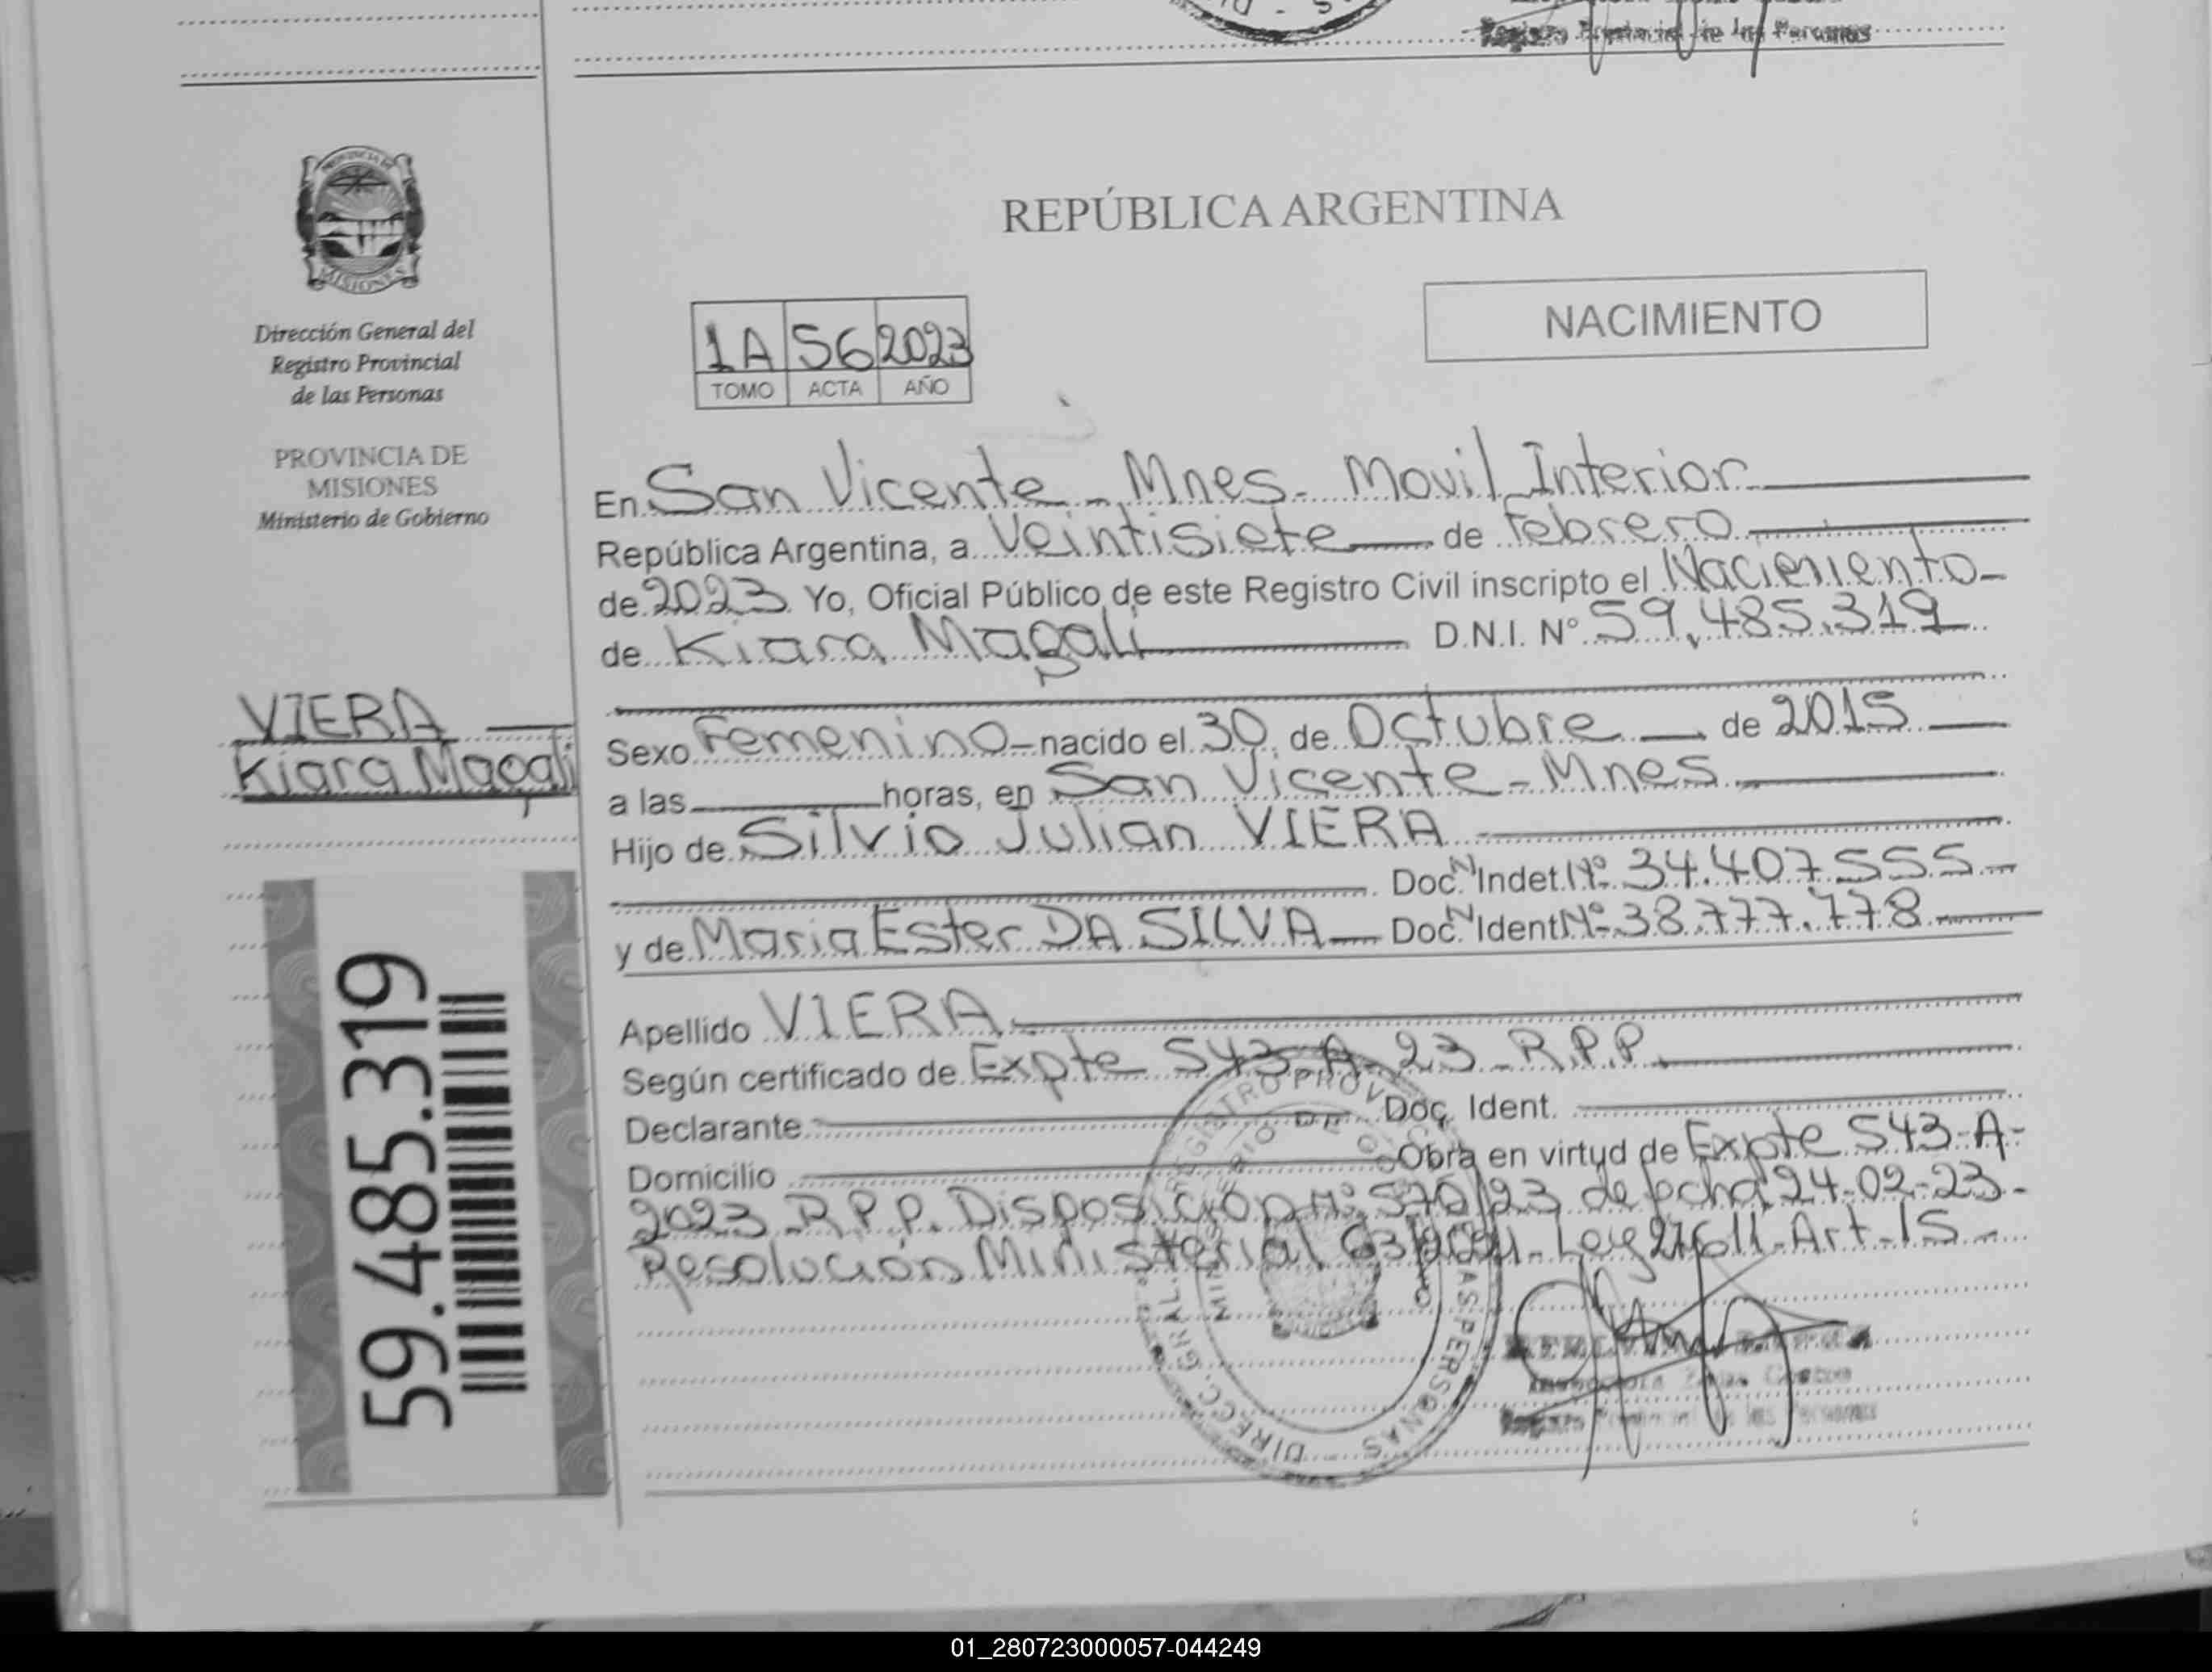 Registro Provincial de las Personas
PROVINCIA DE
MISIONES
Dirección General del
Registro Provincial
de las Personas
PROVINCIA DE
MISIONES
Ministerio de Gobierno
VIERA
Kiara Magali
59.485.319
REPÚBLICA ARGENTINA
NACIMIENTO
1A 56 2023
TOMO ACTA AÑO
En San Vicente - Mnes - Movil Interior
República Argentina, a Veintisiete de Febrero
de 2023 Yo, Oficial Público de este Registro Civil inscripto el Nacimiento
de Kiara Magali D.N.I. N° 59.485.319
Sexo Femenino nacido el 30 de Octubre de 2015
a las horas, en San Vicente - Mnes
Hijo de Silvio Julian VIERA
Doc. N Indet. N° 34.407.555
y de Maria Ester DA SILVA Doc. N Ident N° 38.777.778
Apellido VIERA
Según certificado de Expte 543-A-23-R.P.P.
Declarante Doc. Ident.
Domicilio Obra en virtud de Expte 543-A-
2023-R.P.P. Disposición N° 570/23 de fecha 24-02-23-
Resolución Ministerial 03/2021-Ley 27611-Art-15-
DIRECC. GRAL. REGISTRO PROV. DE LAS PERSONAS
Registro Provincial de las Personas
01_280723000057-044249